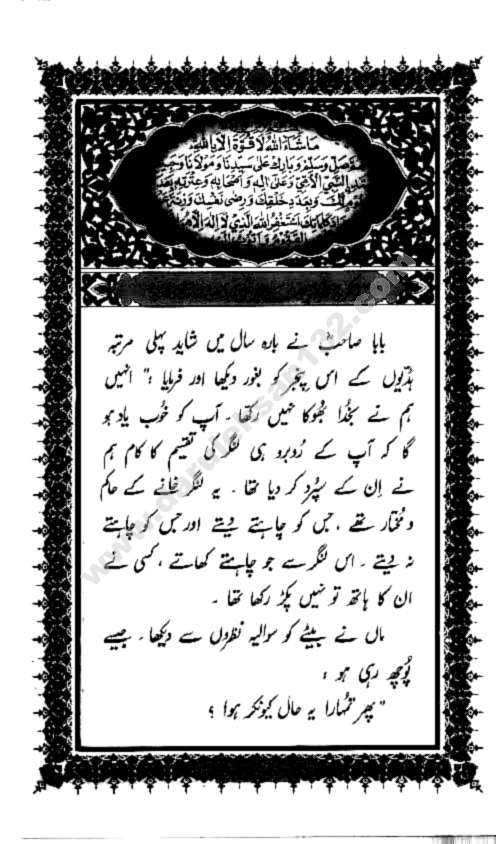 مَاشَآءَ اللهُ لَا قُوَّةَ اِلَّا بِاللهِ
صَلِّ وَسَلِّمْ وَبَارِكْ عَلٰى سَيِّدِنَا وَمَوْلَانَا
النَّبِيِّ الْاُمِّيِّ وَعَلٰى اٰلِهٖ وَاَصْحَابِهٖ وَعِتْرَتِهٖ بِعَدَدِ
وَبِعَدَدِ خَلْقِكَ وَرِضٰى نَفْسِكَ وَزِنَةَ
اَسْتَغْفِرُ اللهَ الَّذِيْ لَا اِلٰهَ اِلَّا هُوَ
بابا صاحبؒ نے بارہ سال میں شاید پہلی مرتبہ
ہڈیوں کے اس پنجر کو بغور دیکھا اور فرمایا : " انہیں
ہم نے بخُدا بھُوکا نہیں رکھا ۔ آپ کو خُوب یاد ہو
گا کہ آپ کے رُوبرو ہی لنگر کی تقسیم کا کام ہم
نے اِن کے سپُرد کر دیا تھا ۔ یہ لنگر خانے کے حاکم
و مُختار تھے ، جس کو چاہتے دیتے اور جس کو چاہتے
نہ دیتے ۔ اس لنگر سے جو چاہتے کھاتے ، کسی نے
ان کا ہاتھ تو نہیں پکڑ رکھا تھا ۔
ماں نے بیٹے کو سوالیہ نظروں سے دیکھا ۔ جیسے
پُوچھ رہی ہو :
" پھر تمُہارا یہ حال کیونکر ہوا ؟